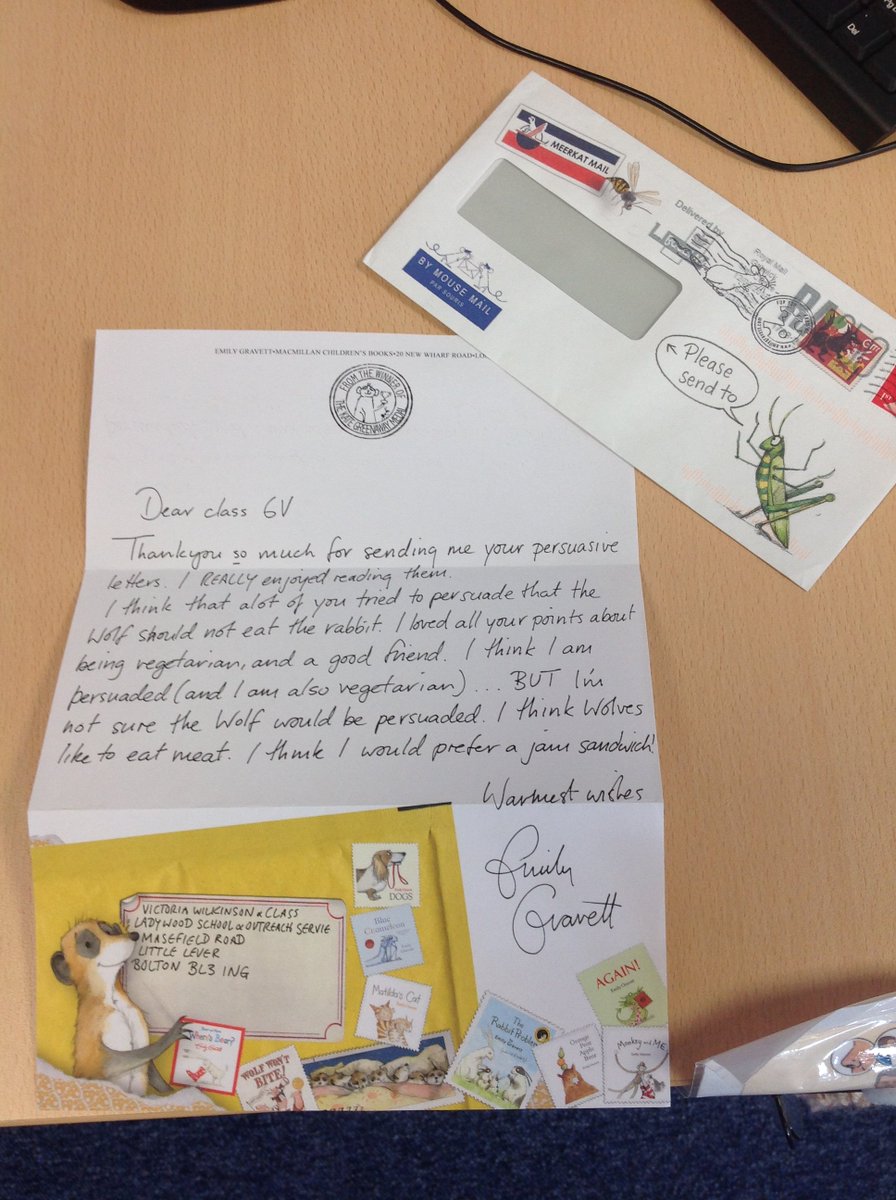 Del
MEERKAT MAIL
Delivered by
Royal Mail
BY MOUSE MAIL
PAR SOURIS
Please
send to
1st
EMILY GRAVETT•MACMILLAN CHILDREN'S BOOKS•20 NEW WHARF ROAD•LO
FROM THE WINNER OF
THE KATE GREENAWAY MEDAL
Dear class 6V
Thankyou so much for sending me your persuasive
letters. I REALLY enjoyed reading them.
I think that alot of you tried to persuade that the
Wolf should not eat the rabbit. I loved all your points about
being vegetarian, and a good friend. I think I am
persuaded (and I am also vegetarian)... BUT I'm
not sure the Wolf would be persuaded. I think Wolves
like to eat meat. I think I would prefer a jam sandwich!
Warmest wishes
Emily
Gravett
VICTORIA WILKINSON & CLASS
LADYWOOD SCHOOL & OUTREACH SERVIE
MASEFIELD ROAD
LITTLE LEVER
BOLTON BL3 1NG
DOGS
Blue
Chameleon
Matilda's Cat
Where's Bear?
WOLF WON'T
BITE!
The
Rabbit Problem
Emily Gravett
Orange
Pear
Apple
Bear
AGAIN!
Emily Gravett
Monkey and ME